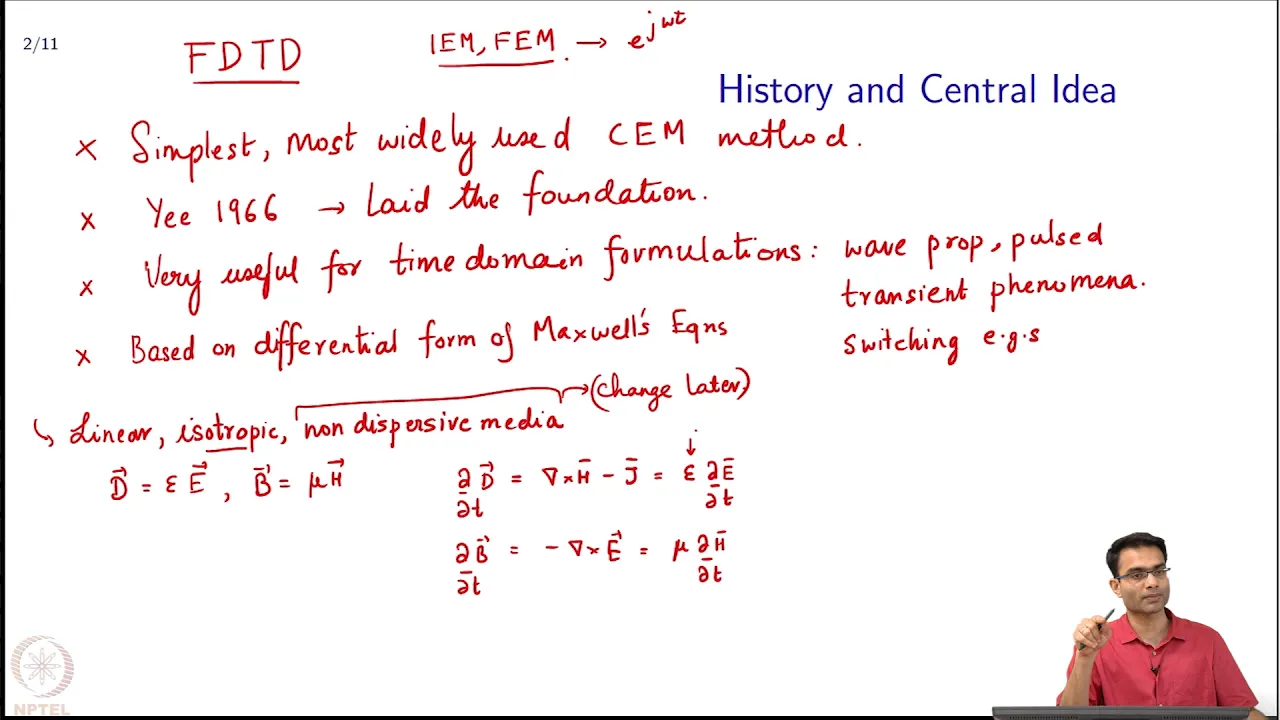 2/11
FDTD
IEM, FEM. → e^{jωt}
History and Central Idea
× Simplest, most widely used CEM method.
× Yee 1966 → Laid the foundation.
× Very useful for time domain formulations: wave prop, pulsed
transient phenomena.
switching e.g.s
× Based on differential form of Maxwell's Eqns
→ (change later)
↳ Linear, isotropic, non dispersive media
D⃗ = ε E⃗ , B̄ = μ H⃗
∂/∂t D⃗ = ∇ × H̄ − J̄ = ε ∂Ē/∂t
∂/∂t B⃗ = − ∇ × E⃗ = μ ∂H̄/∂t
NPTEL